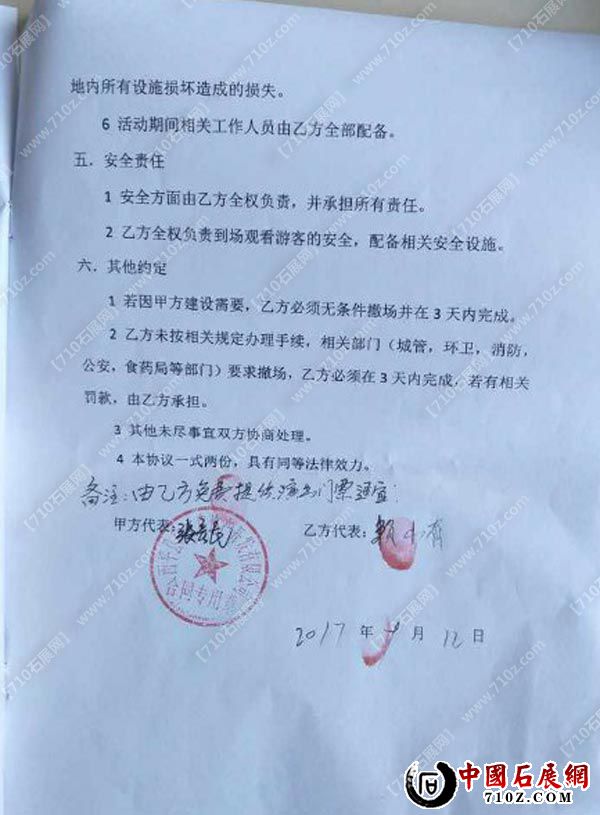 地内所有设施损坏造成的损失。
6 活动期间相关工作人员由乙方全部配备。
五．安全责任
1 安全方面由乙方全权负责，并承担所有责任。
2 乙方全权负责到场观看游客的安全，配备相关安全设施。
六．其他约定
1 若因甲方建设需要，乙方必须无条件撤场并在 3 天内完成。
2 乙方未按相关规定办理手续，相关部门（城管，环卫，消防，
公安，食药局等部门）要求撤场，乙方必须在 3 天内完成，若有相关
罚款，由乙方承担。
3 其他未尽事宜双方协商处理。
4 本协议一式两份，具有同等法律效力。
备注：由乙方免费提供 门票
甲方代表： 乙方代表：
合同专用章
2017 年 9 月 12 日
【710石展网】 www.710z.com
中國石展網
710Z.COM